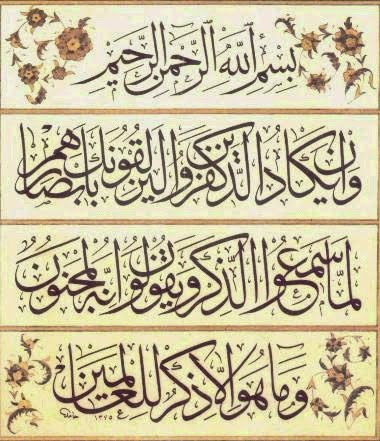 بِسْمِ اللهِ الرَّحْمٰنِ الرَّحِيْمِ
وَاِنْ يَكَادُ الَّذِيْنَ كَفَرُوْا لَيُزْلِقُوْنَكَ بِاَبْصَارِهِمْ
لَمَّا سَمِعُوا الذِّكْرَ وَيَقُوْلُوْنَ اِنَّهُ لَمَجْنُوْنٌ
وَمَا هُوَ اِلَّا ذِكْرٌ لِلْعَالَمِيْنَ
حامد ١٣٧٥